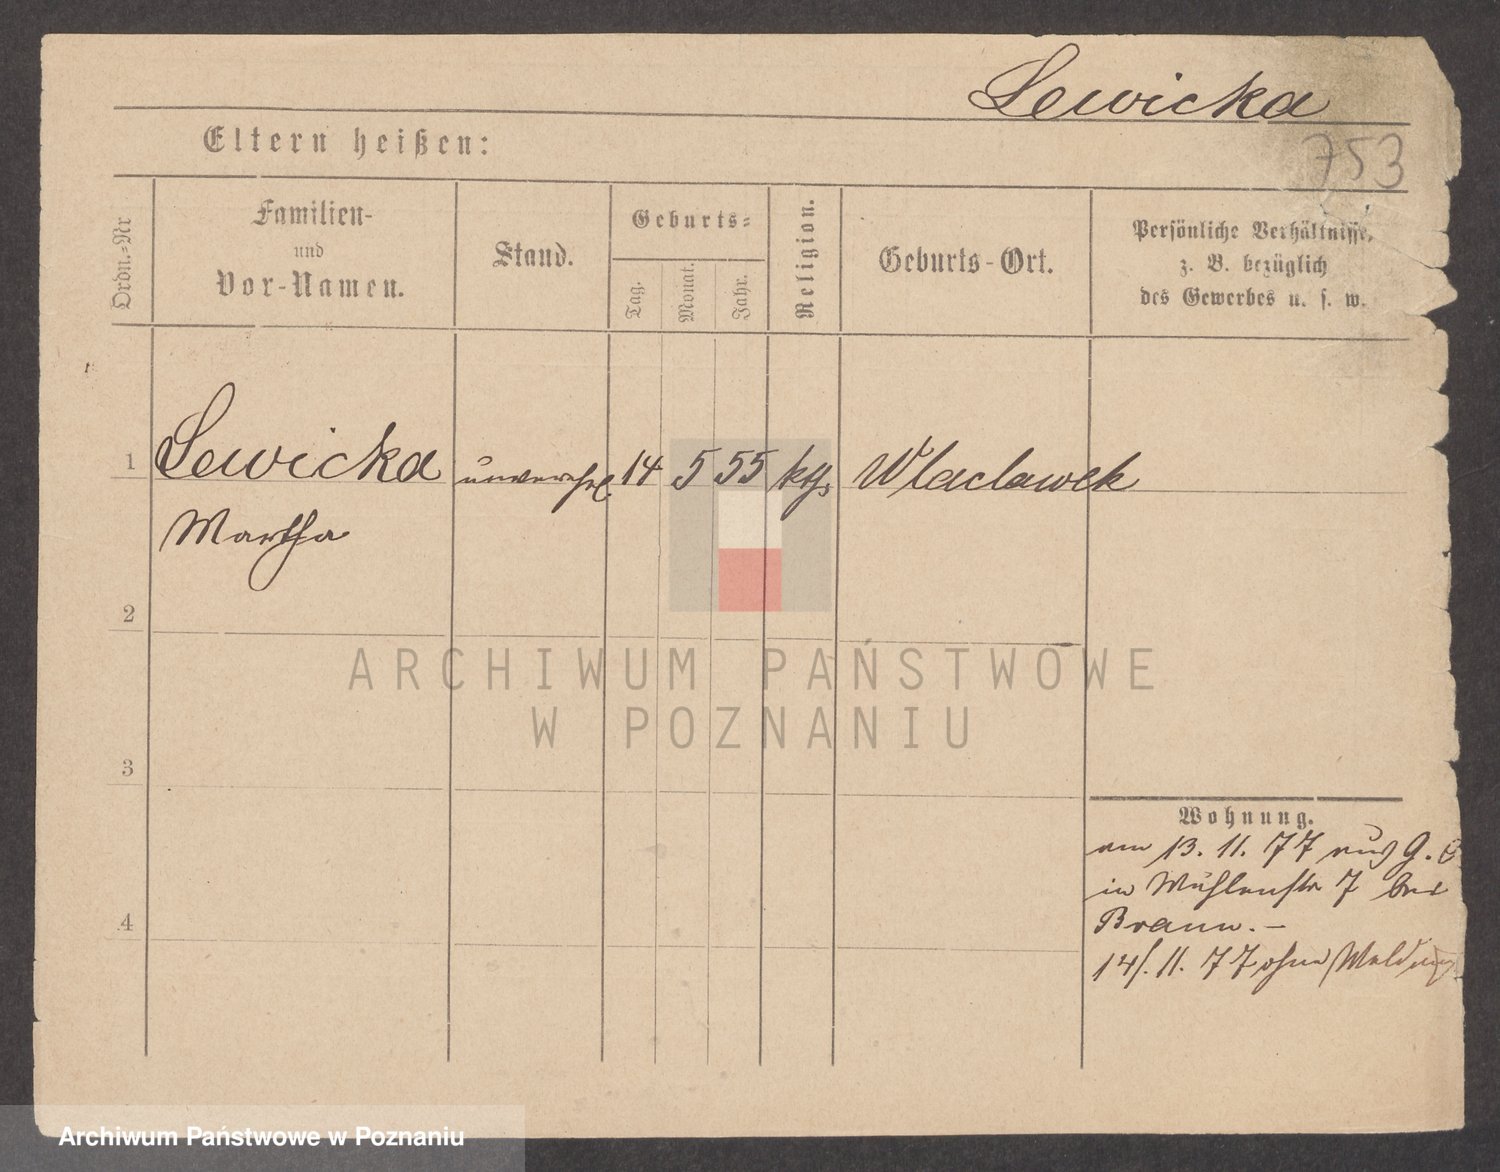 Lewicka
Eltern heißen:
753
Ordn.-Nr
Familien-
und
Vor-Namen.
Stand.
Geburts-
Tag.
Monat.
Jahr.
Religion.
Geburts-Ort.
Persönliche Verhältnisse,
z. B. bezüglich
des Gewerbes u. s. w.
1 Lewicka unverehel. 14 5 55 kth. Wlaclawek
Martha
2
3
4
Wohnung.
am 13. 11. 77 aus G.
in Mühlenstr 7 bei
Braun. –
14/. 11. 77 ohne Meldung
ARCHIWUM PAŃSTWOWE
W POZNANIU
Archiwum Państwowe w Poznaniu